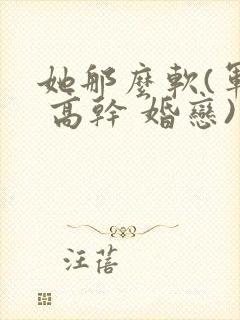 她那麼軟(軍
高幹 婚戀)
汪蓓